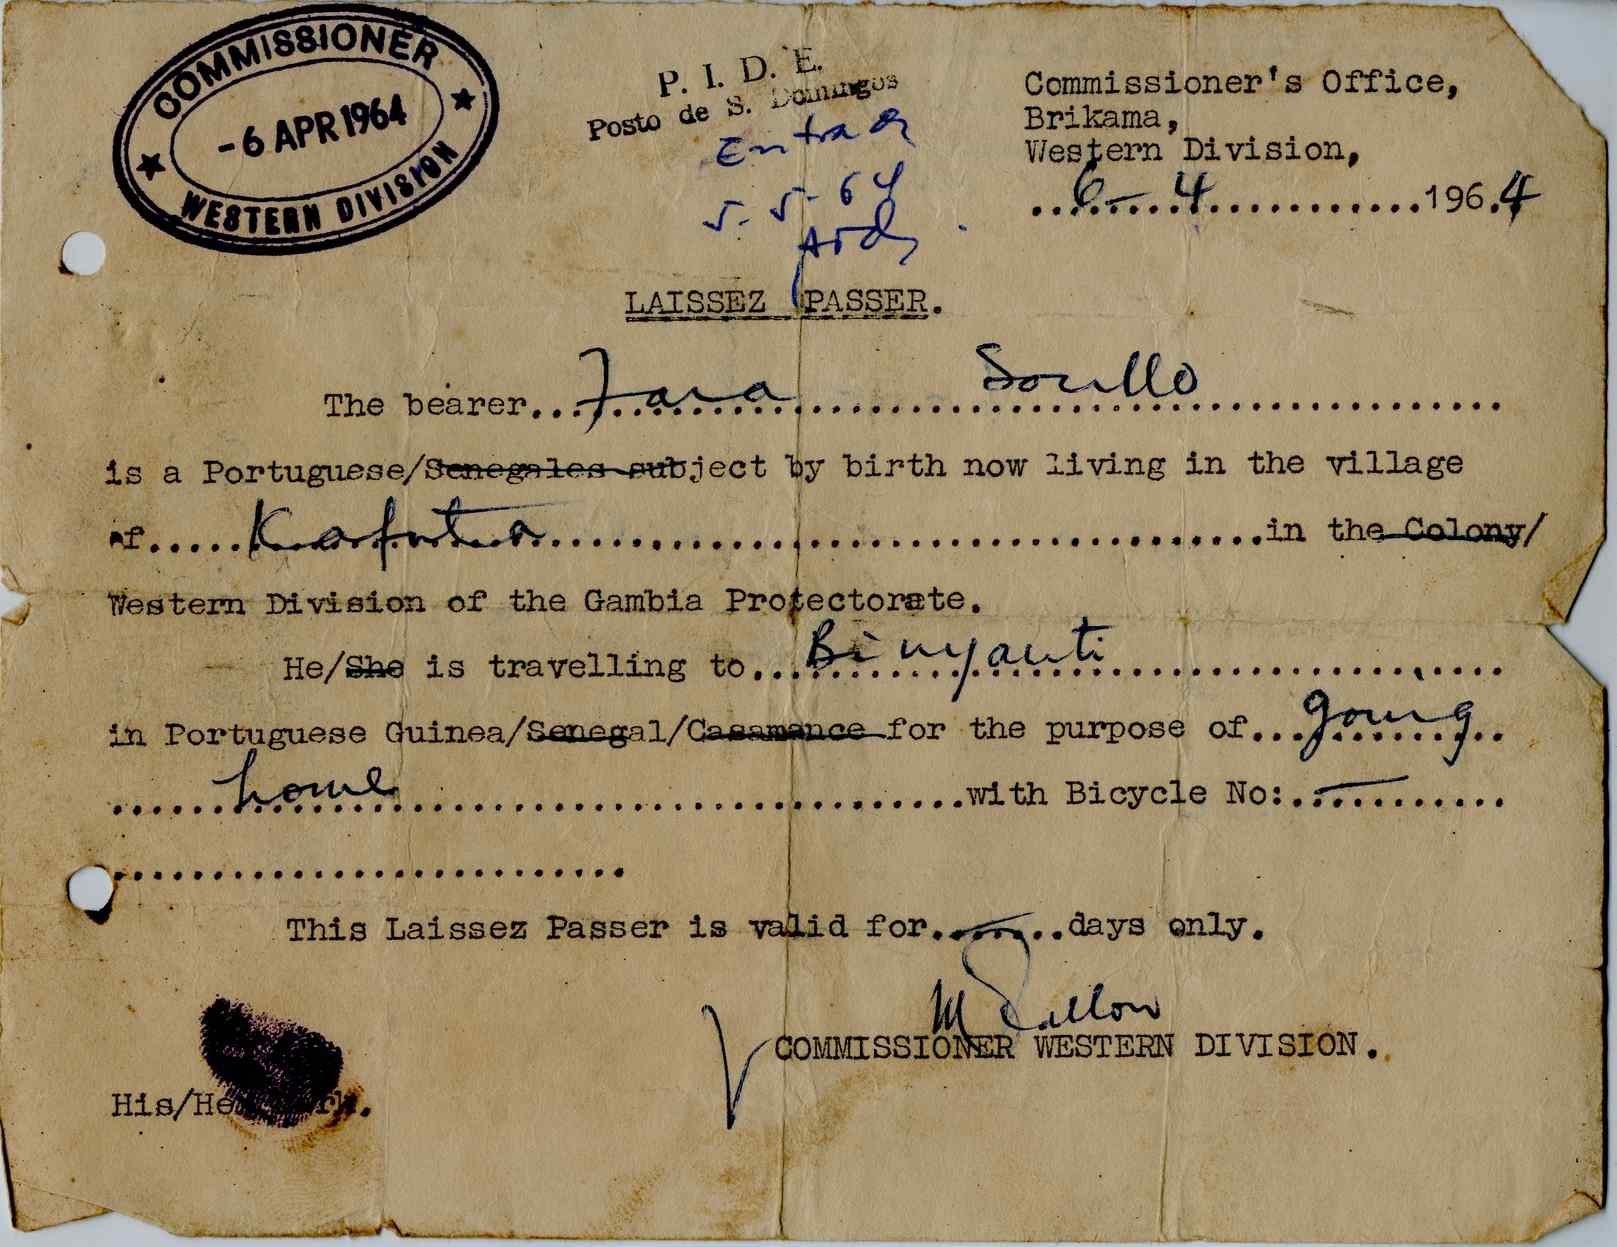 COMMISSIONER
-6 APR 1964
WESTERN DIVISION
P. I. D. E.
Posto de S. Domingos
Entrada
5-5-64
Commissioner's Office,
Brikama,
Western Division,
6-4 1964
LAISSEZ PASSER.
The bearer... Fara
is a Portuguese/Senegales subject by birth now living in the village
of..... Kafuta ......in the Colony/
Western Division of the Gambia Protectorate.
He/She is travelling to...
in Portuguese Guinea/Senegal/Casamance for the purpose of... going
home ......with Bicycle No:. —
This Laissez Passer is valid for. — ..days only.
COMMISSIONER WESTERN DIVISION.
His/Her